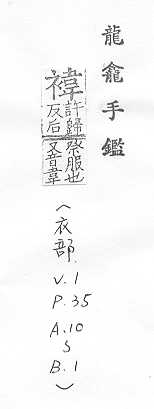 龍龕手鑑
褘許歸反后祭服也又音韋
(衣部
V.1
P.35
A.10
S
B.1
)